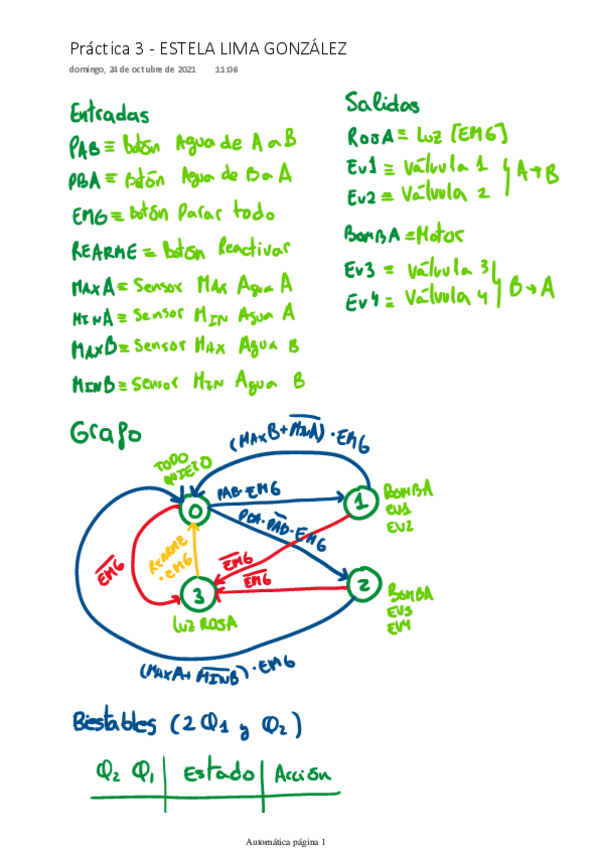 Práctica 3 - ESTELA LIMA GONZÁLEZ
domingo, 24 de octubre de 2021 11:06
Entradas
PAB ≡ Botón Agua de A a B
PBA ≡ Botón Agua de B a A
EMG ≡ botón Parar todo
REARME ≡ Botón Reactivar
MAXA ≡ Sensor MAX Agua A
MINA ≡ Sensor MIN Agua A
MAXB ≡ Sensor MAX Agua B
MINB ≡ Sensor MIN Agua B
Salidas
ROSA ≡ Luz [EMG]
EV1 ≡ Válvula 1
EV2 ≡ Válvula 2
A→B
BOMBA ≡ Motor
EV3 ≡ Válvula 3
EV4 ≡ Válvula 4
B→A
Grafo
(MAXB + M̅I̅N̅A̅) · EMG
TODO
QUIETO
0
PAB·EMG
1
BOMBA
EV1
EV2
PBA·P̅A̅B̅·EMG
E̅M̅G̅
REARME
·EMG
E̅M̅G̅
E̅M̅G̅
3
LUZ ROSA
2
BOMBA
EV3
EV4
(MAXA + M̅I̅N̅B̅) · EMG
Biestables (2 Q1 y Q2)
Q2 Q1 | Estado | Acción
Automática página 1